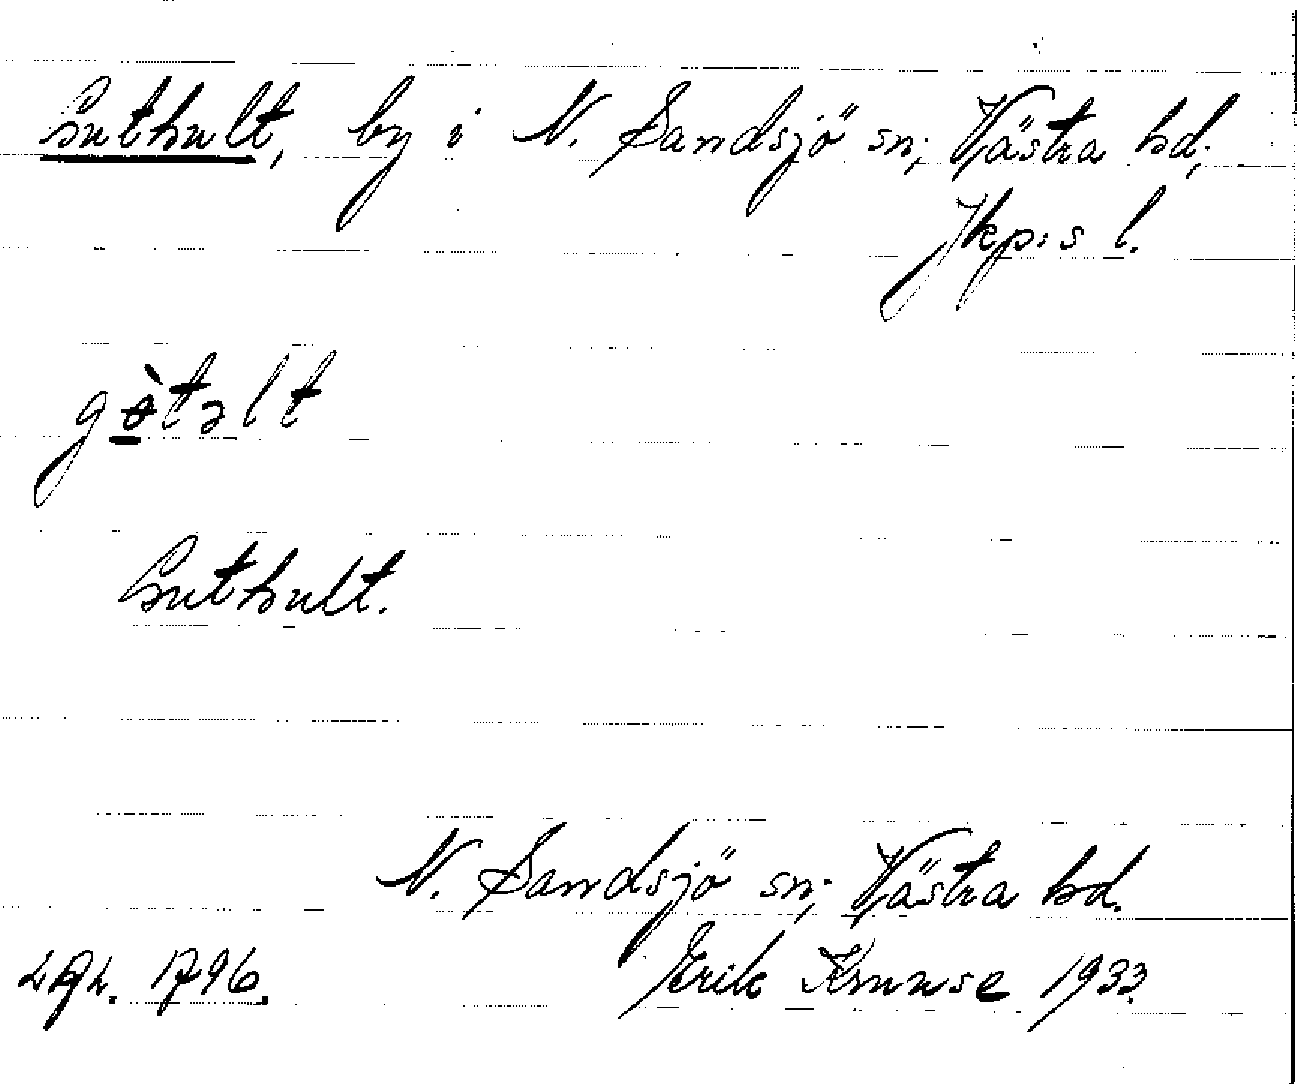 Guthult, by i N. Sandsjö sn; Västra hd;
Jkp:s l.
gètəlt
Guthult.
N. Sandsjö sn; Västra hd.
1796. Erik Kruuse 1933.